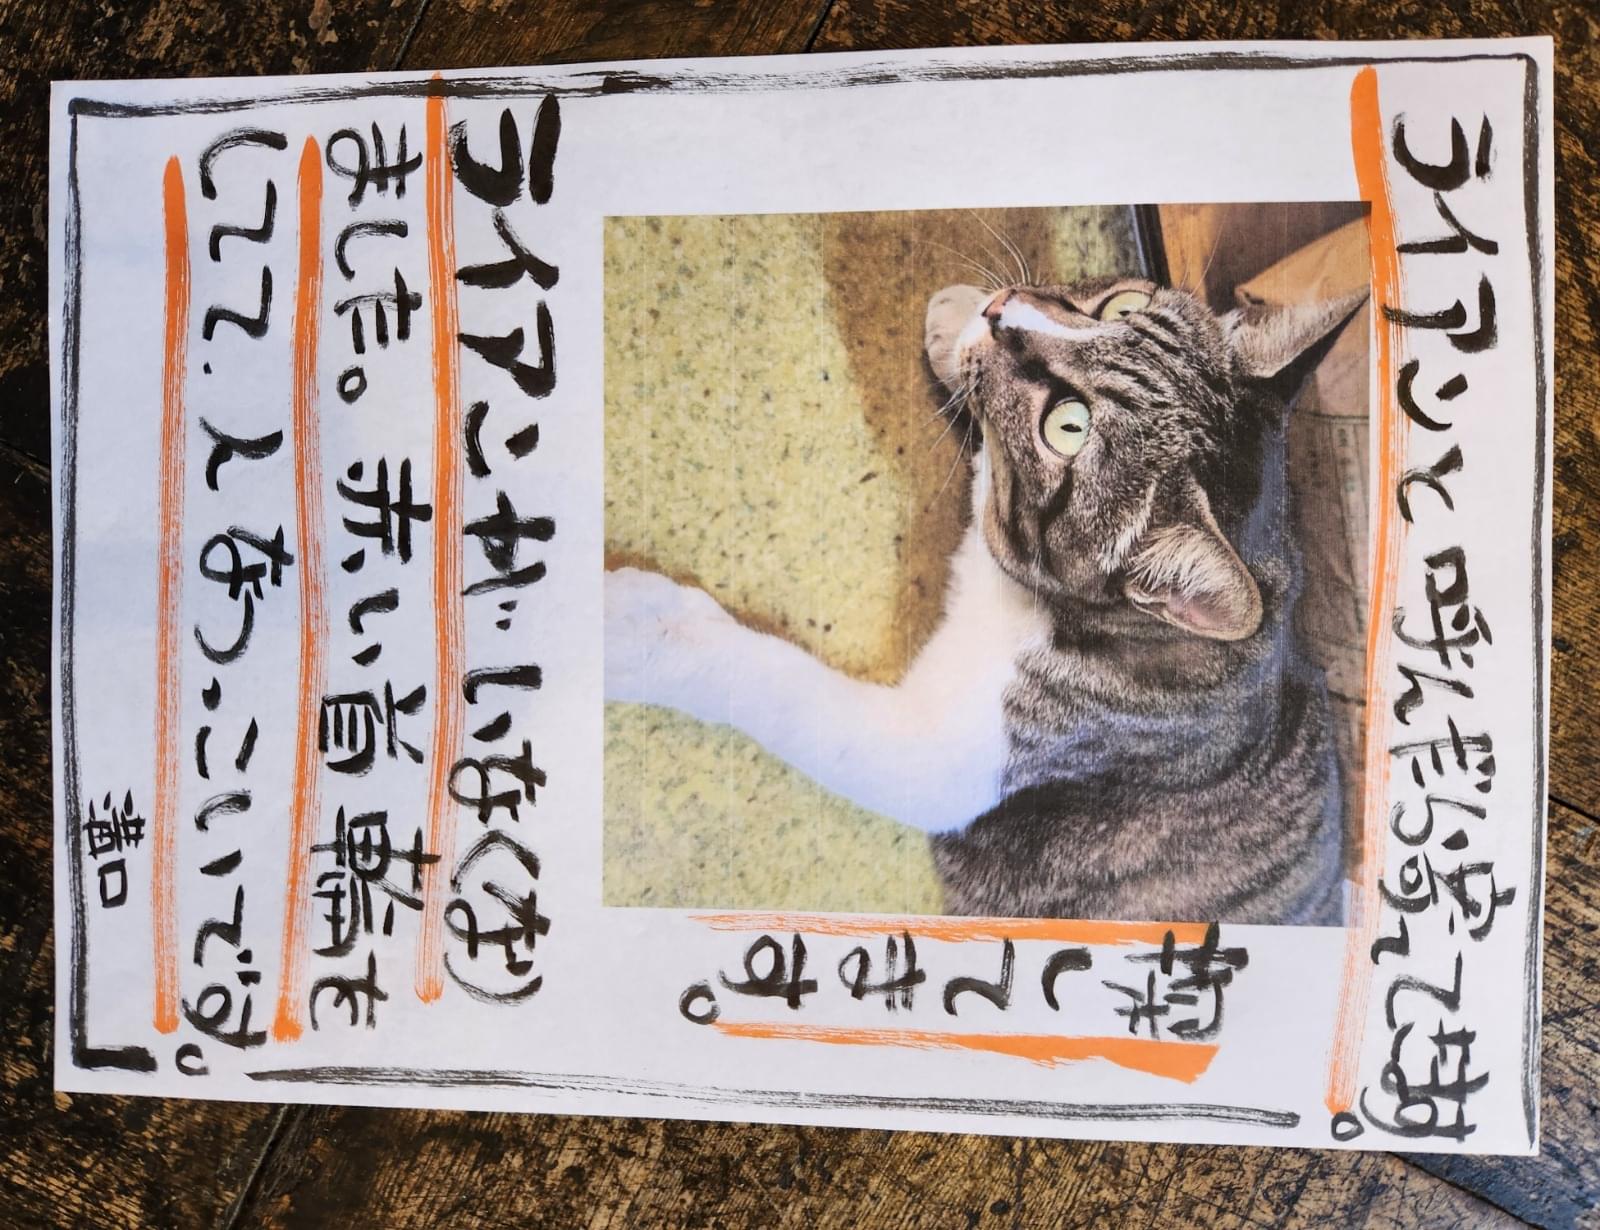 ライアンと呼んだら寄って
探してます。
ライアンがいなくなり
ました。赤い首輪を
してて、人なつっこいです。
溝口